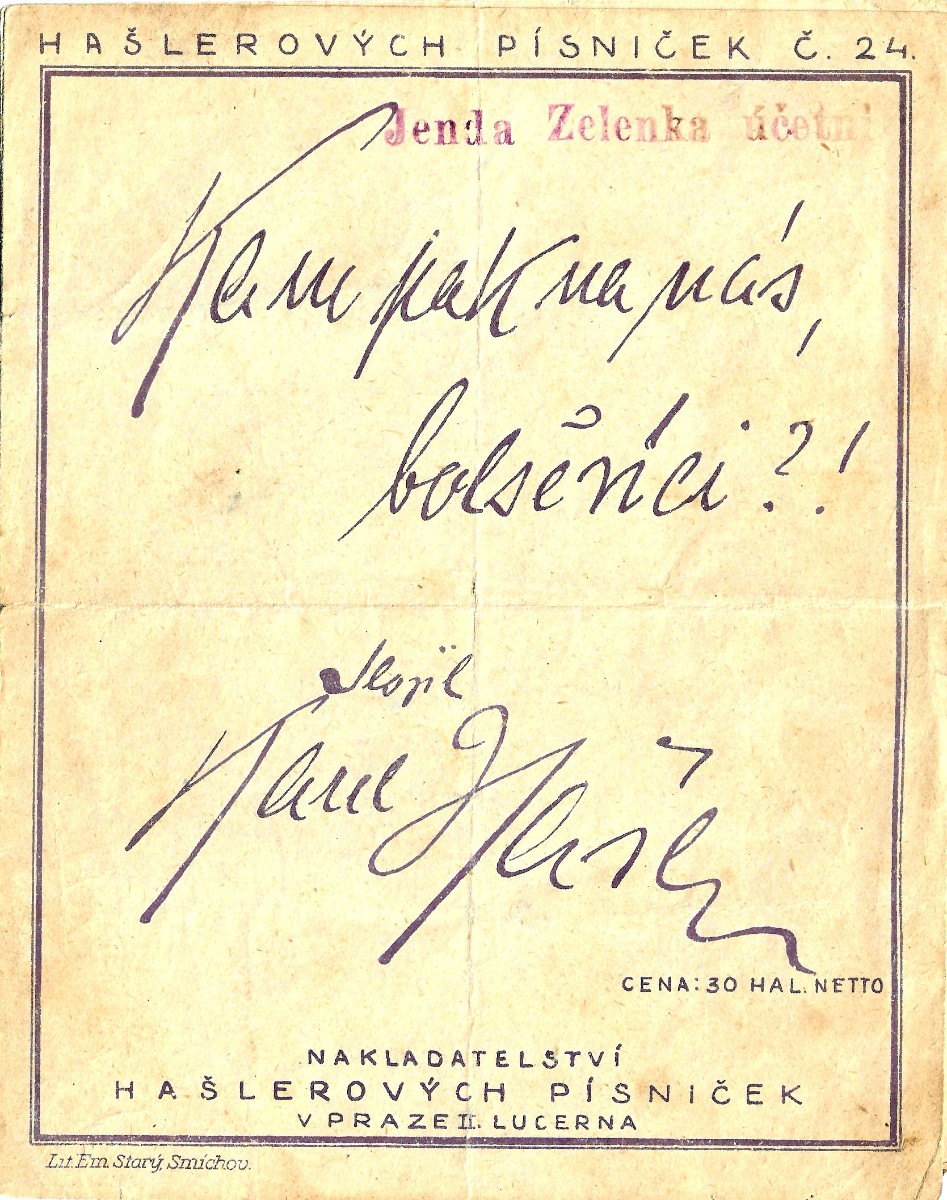 HAŠLEROVÝCH PÍSNIČEK Č. 24.
Jenda Zelenka účetní
Kam pak na nás,
bolševíci?!
Složil
Karel Hašler
CENA: 30 HAL. NETTO
NAKLADATELSTVÍ
HAŠLEROVÝCH PÍSNIČEK
V PRAZE II. LUCERNA
Lit. Em. Starý, Smíchov.